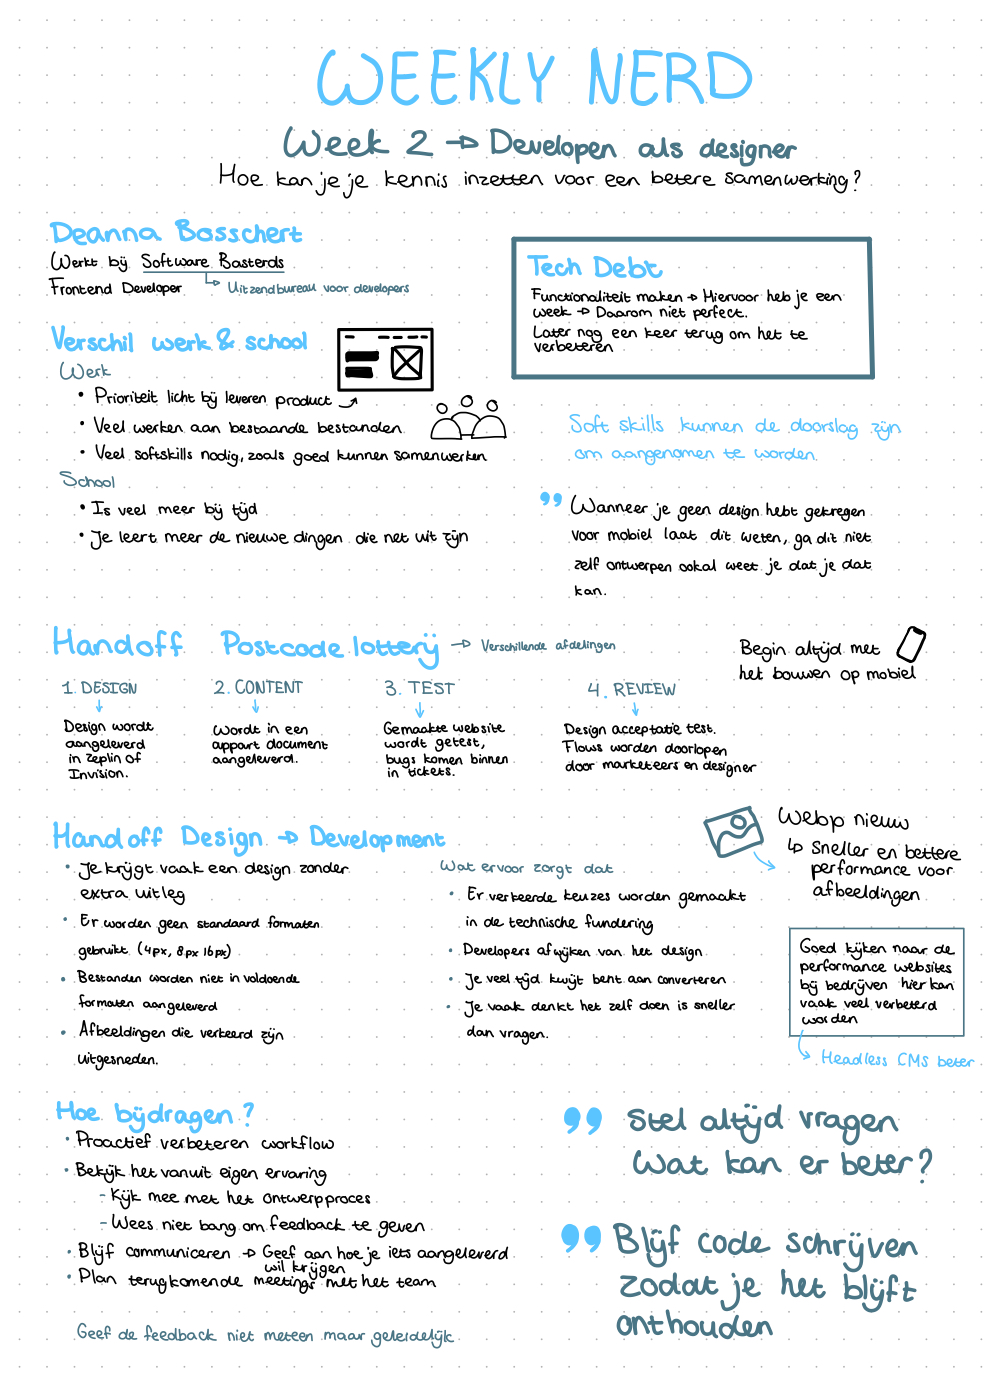 WEEKLY NERD
Week 2 → Developen als designer
Hoe kan je je kennis inzetten voor een betere samenwerking?
Deanna Bosschert
Werkt bij Software Basterds
Frontend Developer
Uitzendbureau voor developers
Tech Debt
Functionaliteit maken → Hiervoor heb je een
week → Daarom niet perfect.
Later nog een keer terug om het te
verbeteren
Verschil werk & school
Werk
• Prioriteit licht bij leveren product
• Veel werken aan bestaande bestanden
• Veel softskills nodig, zoals goed kunnen samenwerken
School
• Is veel meer bij tijd
• Je leert meer de nieuwe dingen die net uit zijn
Soft skills kunnen de doorslag zijn
om aangenomen te worden
" Wanneer je geen design hebt gekregen
voor mobiel laat dit weten, ga dit niet
zelf ontwerpen ookal weet je dat je dat
kan.
Handoff Postcode lotterij → Verschillende afdelingen
1. DESIGN
Design wordt
aangeleverd
in Zeplin of
Invision.
2. CONTENT
Wordt in een
appart document
aangeleverd.
3. TEST
Gemaakte website
wordt getest,
bugs komen binnen
in tickets.
4. REVIEW
Design acceptatie test.
Flows worden doorlopen
door marketeers en designer
Begin altijd met
het bouwen op mobiel
Handoff Design → Development
• Je krijgt vaak een design zonder
extra uitleg
• Er worden geen standaard formaten
gebruikt (4px, 8px 16px)
• Bestanden worden niet in voldoende
formaten aangeleverd
• Afbeeldingen die verkeerd zijn
uitgesneden.
Wat ervoor zorgt dat
• Er verkeerde keuzes worden gemaakt
in de technische fundering
• Developers afwijken van het design
• Je veel tijd kwijt bent aan converteren
• Je vaak denkt het zelf doen is sneller
dan vragen.
Webp nieuw
↳ Sneller en bettere
performance voor
afbeeldingen
Goed kijken naar de
performance websites
bij bedrijven hier kan
vaak veel verbeterd
worden
Headless CMS beter
Hoe bijdragen?
• Proactief verbeteren workflow
• Bekijk het vanuit eigen ervaring
- Kijk mee met het ontwerpproces
- Wees niet bang om feedback te geven
• Blijf communiceren → Geef aan hoe je iets aangeleverd
wil krijgen
• Plan terugkomende meetings met het team
Geef de feedback niet meteen maar geleidelijk
" Stel altijd vragen
Wat kan er beter?
" Blijf code schrijven
zodat je het blijft
onthouden